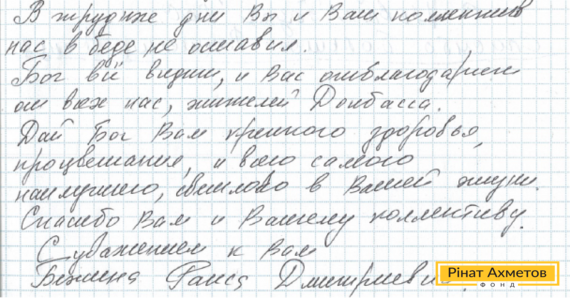 В трудные дни Вы и Ваш коллектив
нас в беде не оставил.
Бог всё видит, и Вас отблагодарит
от всех нас, жителей Донбасса.
Дай Бог Вам крепкого здоровья,
процветания, и всего самого
наилучшего, светлого в Вашей жизни.
Спасибо Вам и Вашему коллективу.
С уважением к Вам
Раиса Дмитриевна
Рінат Ахметов
ФОНД